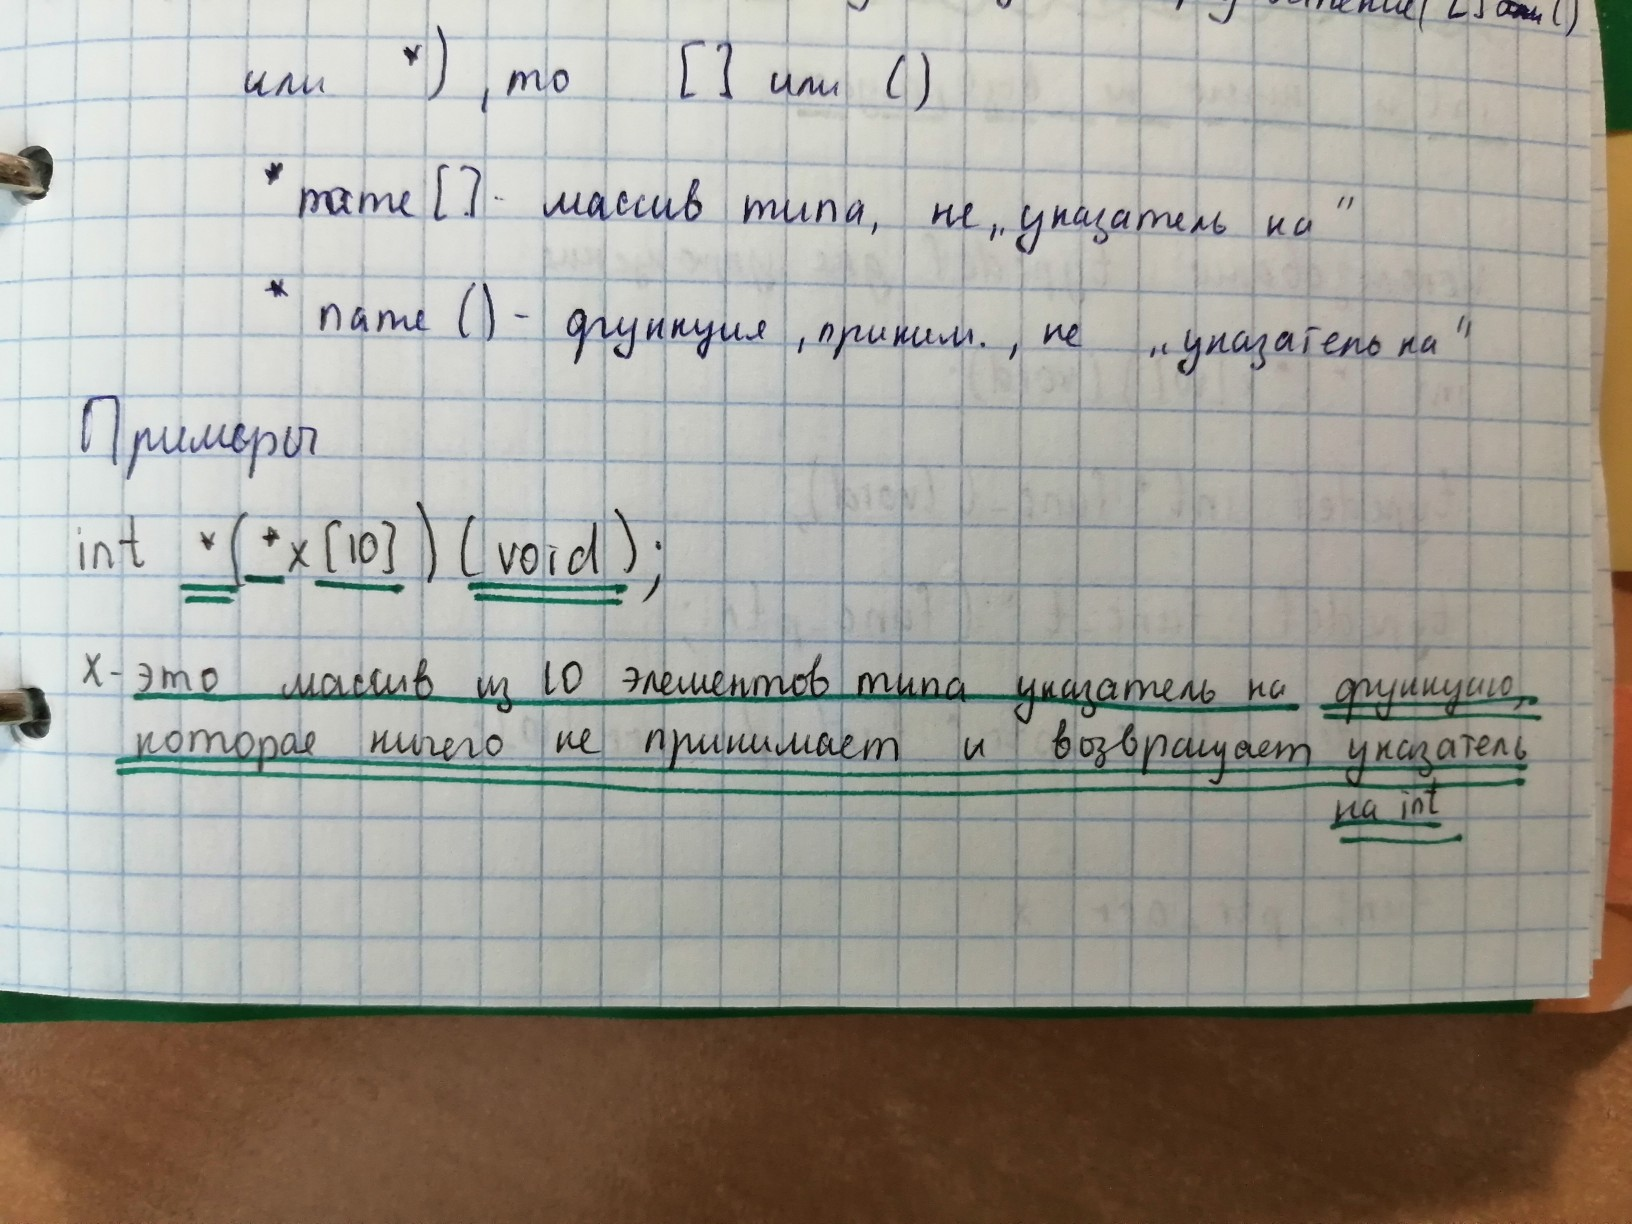 или *), то [] или ()
* name [] - массив типа, не „указатель на"
* name () - функция, приним., не „указатель на"
Примеры
int *(*x[10])(void);
x - это массив из 10 элементов типа указатель на функцию,
которая ничего не принимает и возвращает указатель
на int